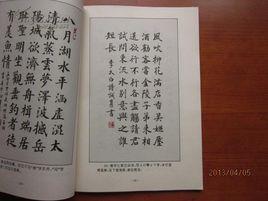 八月湖水平涵虛混太
清氣蒸雲夢澤波撼岳
陽城欲濟無舟楫端
居恥聖明坐觀垂釣者徒
有羨魚情
風吹柳花滿店香吳姬壓
酒勸客嘗金陵子弟來相
送欲行不行各盡觴請君
試問東流水別意與之誰
短長
李太白詩
書
2013/04/05